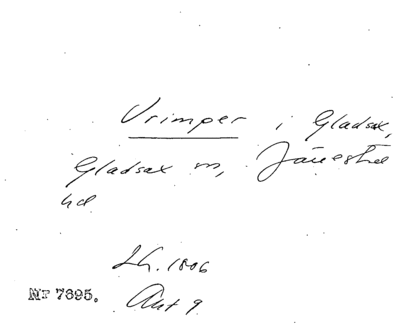 Vrimper i Gladsax,
Gladsax sn, Järrestad
hd
Lh. 1806
Akt 9
Nr 7695.